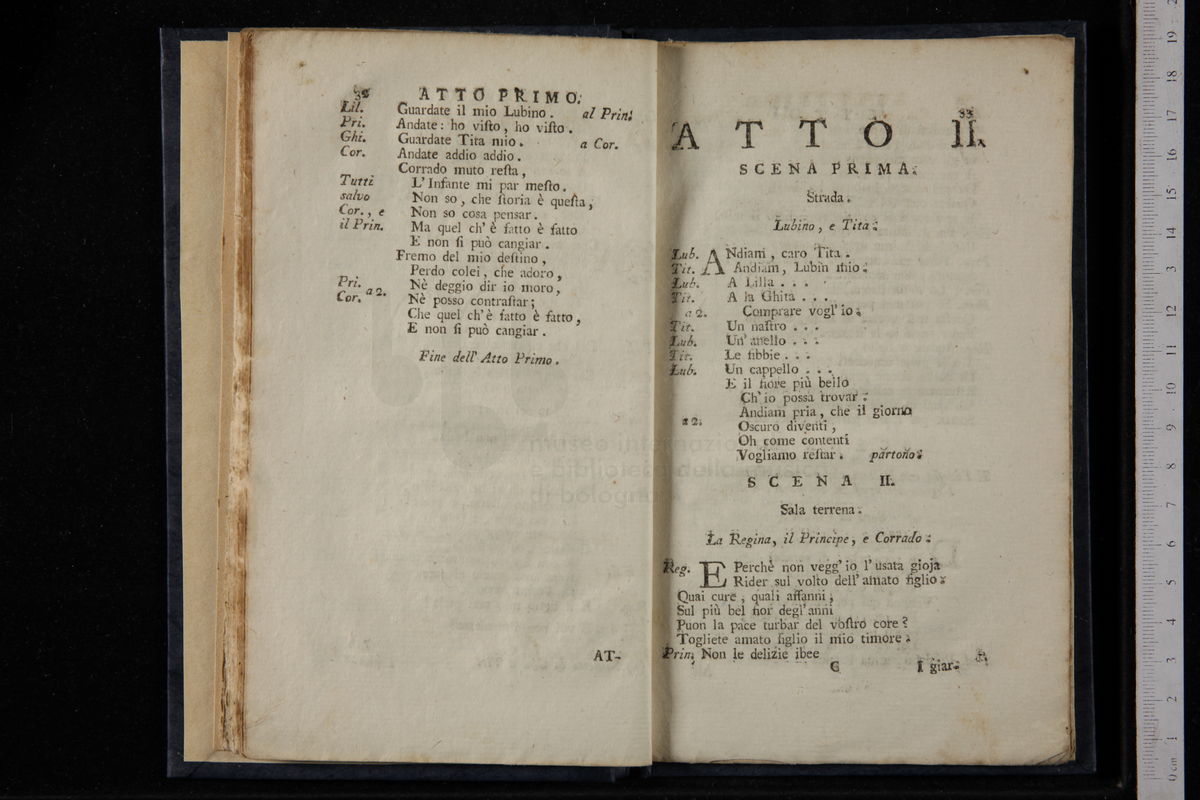 32 ATTO PRIMO.
Lil. Guardate il mio Lubino. al Prin.
Pri. Andate: ho viſto, ho viſto.
Ghi. Guardate Tita mio. a Cor.
Cor. Andate addio addio.
Corrado muto reſta,
Tutti L'Infante mi par meſto.
salvo Non so, che ſtoria è queſta,
Cor., e Non so cosa pensar.
il Prin. Ma quel ch'è fatto è fatto
E non ſi può cangiar.
Fremo del mio deſtino,
Perdo colei, che adoro,
Pri. Nè deggio dir io moro,
Cor. a 2. Nè posso contraſtar;
Che quel ch'è fatto è fatto,
E non ſi può cangiar.
Fine dell' Atto Primo.
AT-
33
ATTO II.
SCENA PRIMA.
Strada.
Lubino, e Tita.
Lub. ANdiam, caro Tita.
Tit. Andiam, Lubin mio.
Lub. A Lilla . . .
Tit. A la Ghita . . .
a 2. Comprare vogl' io.
Tit. Un naſtro . . .
Lub. Un' anello . . .
Tit. Le fibbie . . .
Lub. Un cappello . . .
E il fiore più bello
Ch' io possa trovar.
Andiam pria, che il giorno
a 2. Oscuro diventi,
Oh come contenti
Vogliamo reſtar. partono.
SCENA II.
Sala terrena.
La Regina, il Principe, e Corrado.
Reg. E Perchè non vegg' io l' usata gioja
Rider sul volto dell' amato figlio.
Quai cure, quali affanni,
Sul più bel fior degl' anni
Puon la pace turbar del voſtro core?
Togliete amato figlio il mio timore.
Prin. Non le delizie ibee
C I giar-
museo internazionale
biblioteca della musica
di bologna
0 cm 1 2 3 4 5 6 7 8 9 10 11 12 13 14 15 16 17 18 19 2